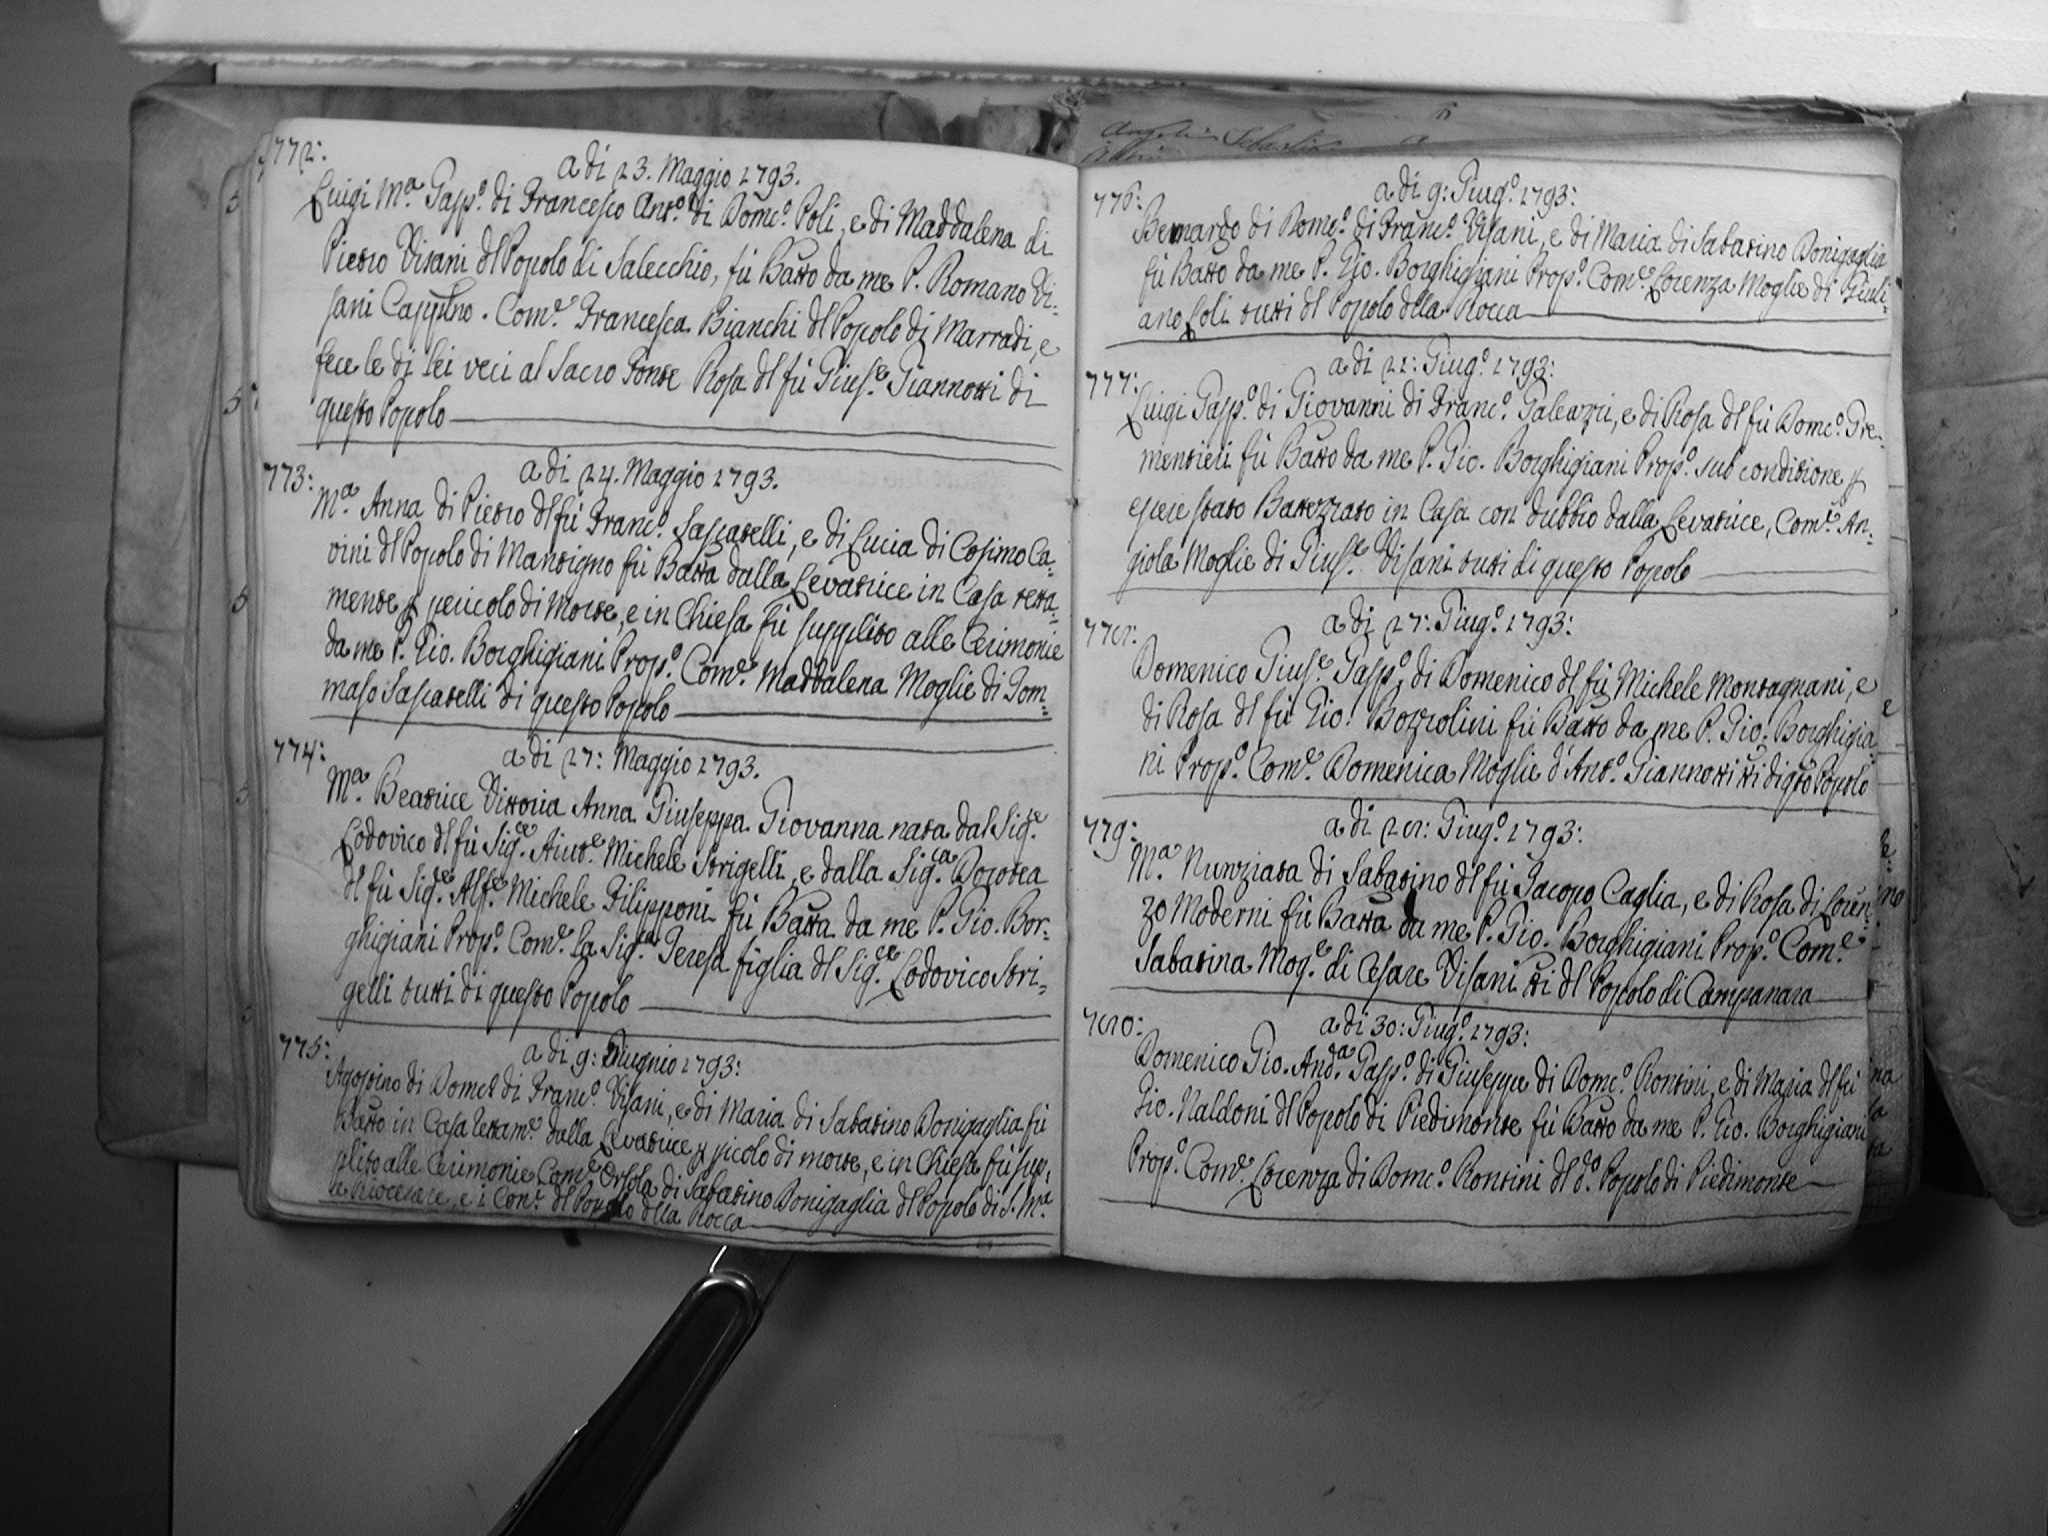 772:
a di 23. Maggio 1793.
Luigi Mª Gasp.º di Francesco Ant.º di Dom.º Poli, e di Maddalena di
Pietro Visani dl Popolo di Salecchio, fù Batto da me P. Romano Vi=
sani Capplno. Com.e Francesca Bianchi dl Popolo di Marradi, e
fece le di lei veci al Sacro Fonte Rosa dl fù Gius.e Giannotti di
questo Popolo
773:
a di 24. Maggio 1793.
Mª Anna di Pietro dl fù Franc.º Sascatelli, e di Lucia di Cosimo Ca=
vini dl Popolo di Mantigno fù Batta dalla Levatrice in Casa retta=
mente p pericolo di Morte, e in Chiesa fù supplito alle Cerimonie
da me P. Gio. Borghigiani Prop.º Com.e Maddalena Moglie di Tom=
maso Sascatelli di questo Popolo
774:
a di 27: Maggio 1793.
Mª Beatrice Vittoria Anna Giuseppa Giovanna nata dal Sig.re
Lodovico dl fù Sig.re Aiut.e Michele Strigelli, e dalla Sig.ra Dorotea
dl fù Sig.re Alf.e Michele Filipponi fù Batta da me P. Gio. Bor=
ghigiani Prop.º Com.e la Sig.ra Teresa figlia dl Sig.re Lodovico Stri=
gelli tutti di questo Popolo
775:
a di 9: Giugnio 1793:
Agostino di Domco di Franc.º Visani, e di Maria di Sabatino Bonigaglia fù
Batto in Casa rettam.e dalla Levatrice p picolo di morte, e in Chiesa fù sup=
plito alle Cerimonie Com.e Orsola di Sabatino Bonigaglia dl Popolo di S. Mª
e i Con.i dl Popolo dlla Rocca
776:
a di 9: Giug.º 1793:
Bernardo di Dom.º di Franc.º Visani, e di Maria di Sabatino Bonigaglia
fù Batto da me P. Gio. Borghigiani Prop.º Com.e Lorenza Moglie di Giuli=
ano Loli tutti dl Popolo dlla Rocca
777:
a di 21: Giug.º 1793:
Luigi Gasp.º di Giovanni di Franc.º Galeazzi, e di Rosa dl fù Dom.º Tre=
mentieri fù Batto da me P. Gio. Borghigiani Prop.º sub conditione p
essere stato Battezzato in Casa con dubbio dalla Levatrice, Com.e An=
giola Moglie di Gius.e Visani tutti di questo Popolo
778:
a di 27: Giug.º 1793:
Domenico Gius.e Gasp.º di Domenico dl fù Michele Montagnani, e
di Rosa dl fù Gio. Bozzolini fù Batto da me P. Gio. Borghigia=
ni Prop.º Com.e Domenica Moglie d'Ant.º Giannotti tti di qsto Popolo
779:
a di 28: Giug.º 1793:
Mª Nunziata di Sabatino dl fù Jacopo Caglia, e di Rosa di Loren=
zo Moderni fù Batta da me P. Gio. Borghigiani Prop.º Com.e
Sabatina Mog.e di Cesare Visani tti dl Popolo di Campanara
780:
a di 30: Giug.º 1793:
Domenico Gio. And.a Gasp.º di Giuseppe di Dom.º Rontini, e di Maria dl fù
Gio. Naldoni dl Popolo di Piedimonte fù Batto da me P. Gio. Borghigiani
Prop.º Com.e Lorenza di Dom.º Rontini dl d.º Popolo di Piedimonte